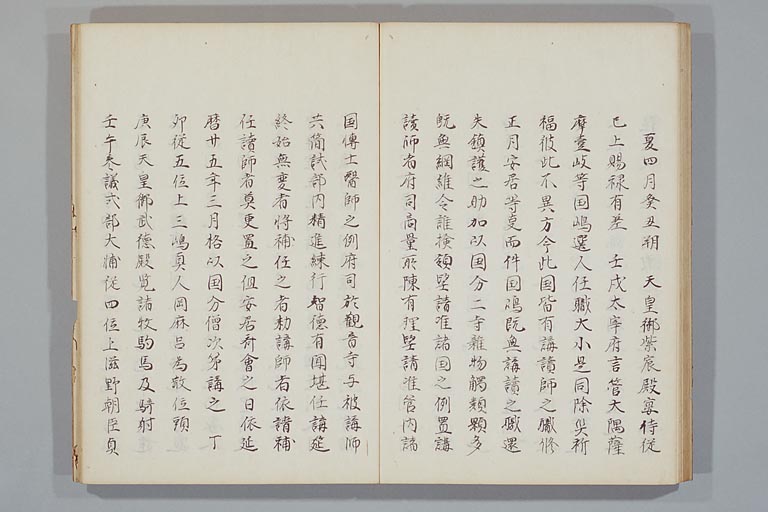 夏四月癸丑朔　天皇御紫宸殿宴侍従
已上賜禄有差　壬戌太宰府言管大隅薩
摩壹岐等国嶋選人任職大小是同除災祈
福彼此不異方今此国皆有講讀師之職修
正月安居等事而件国嶋既無講讀之職還
失鎮護之助加以国分二寺雑物觸類顆多
既無綱維令誰撿領望請准諸国之例置講
讀師者府司商量所陳有理望請准管内諸
国博士醫師之例府司於觀音寺与被講師
共簡試部内精進練行智德有聞堪任講莚
終始無変者将補任之者勅講師者依請補
任讀師者莫更置之但安居斉會之日依延
暦廿五年三月格以国分僧次第講之　丁
卯従五位上三嶋真人岡麻呂為散位頭
庚辰天皇御武德殿覧諸牧駒馬及騎射
壬午参議式部大輔従四位上滋野朝臣貞